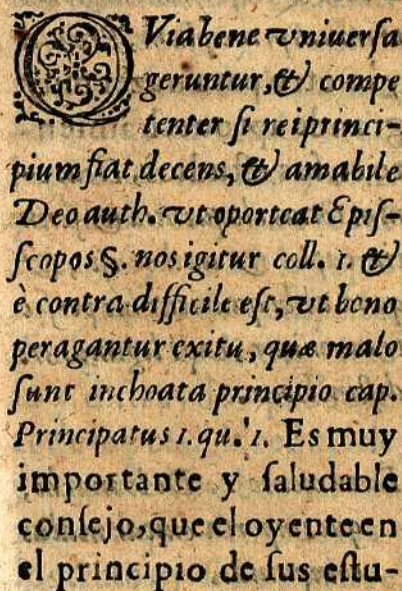 QVia bene vniuerſa
geruntur, & compe
tenter ſi rei princi-
pium fiat decens, & amabile
Deo auth. vt oporteat Epiſ-
ſcopos §. nos igitur coll. 1. &
è contra difficile eſt, vt bono
peragantur exitu, quæ malo
ſunt inchoata principio cap.
Principatus 1. qu. 1. Es muy
importante y ſaludable
conſejo, que el oyente en
el principio de ſus eſtu-